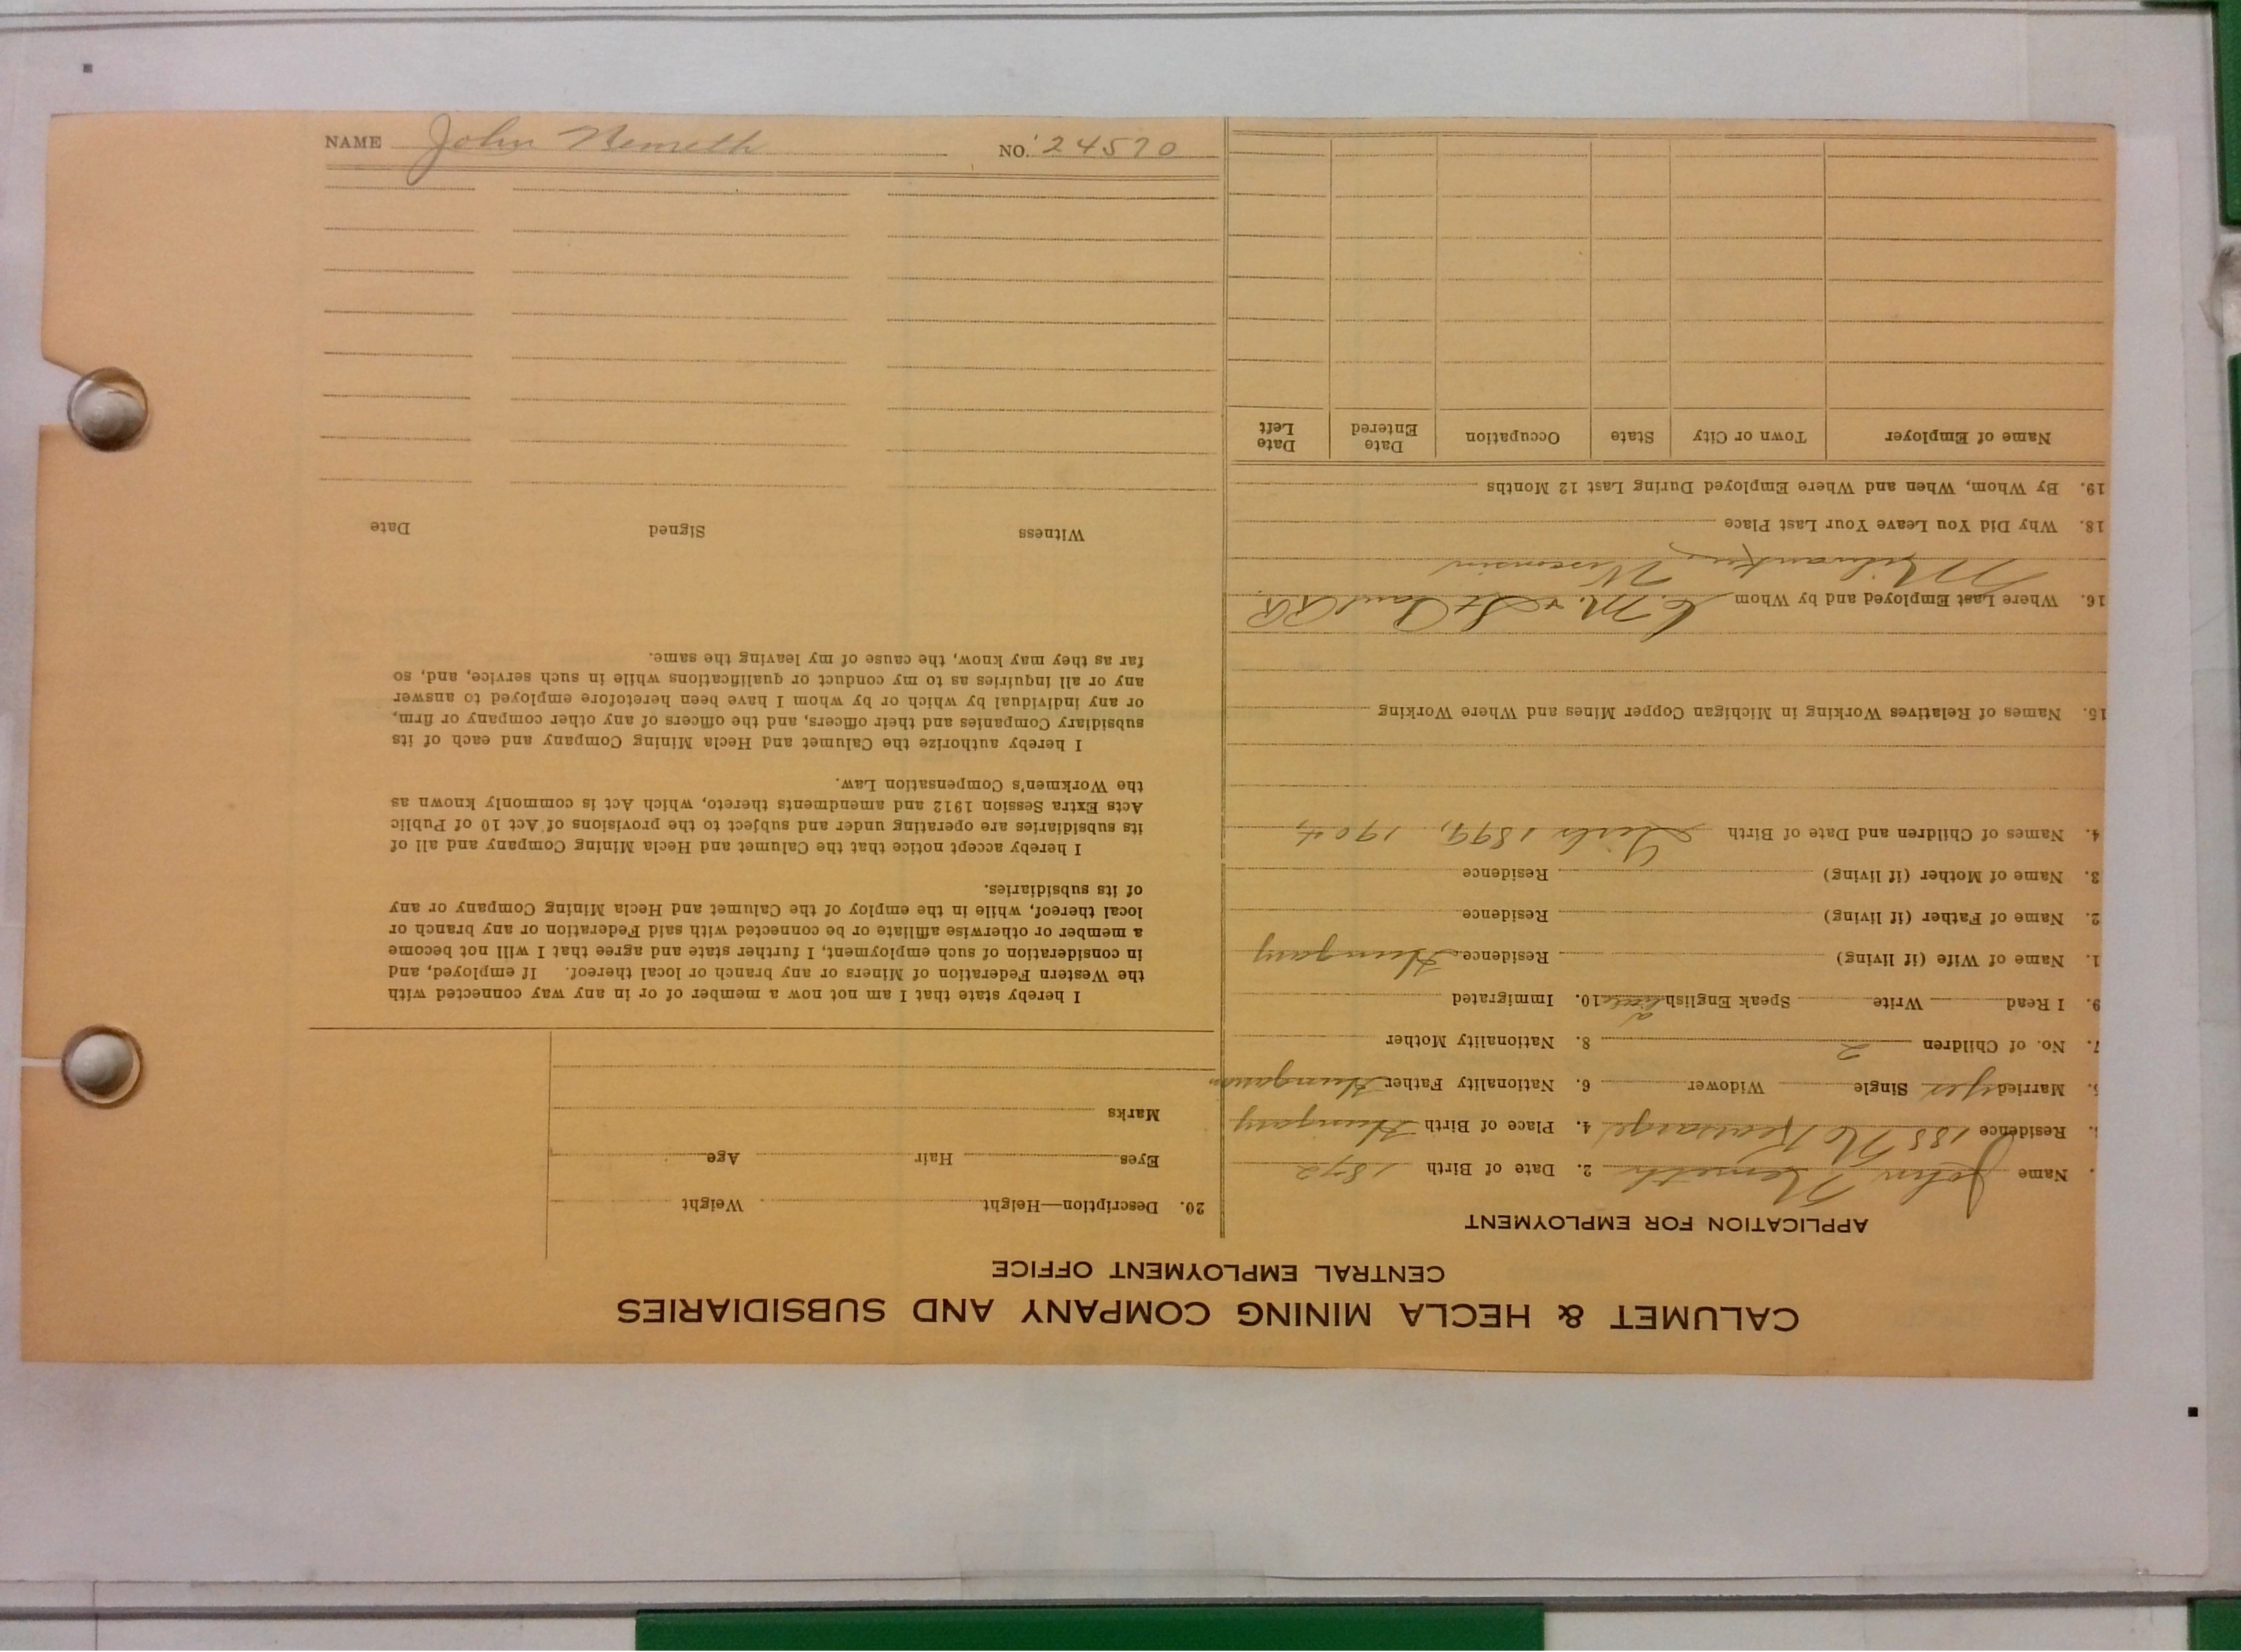 NAME John Nemeth NO. 24570
CALUMET & HECLA MINING COMPANY AND SUBSIDIARIES
CENTRAL EMPLOYMENT OFFICE
APPLICATION FOR EMPLOYMENT
. Name John Nemeth 2. Date of Birth 1872
. Residence 188 No Kearsarge 4. Place of Birth Hungary
. Married yes Single Widower 6. Nationality Father Hungarian
7. No. of Children 2 8. Nationality Mother
9. I Read Write Speak English little 10. Immigrated
1. Name of Wife (if living) Residence Hungary
2. Name of Father (if living) Residence
3. Name of Mother (if living) Residence
4. Names of Children and Date of Birth Girls 1899, 1904,
15. Names of Relatives Working in Michigan Copper Mines and Where Working
16. Where Last Employed and by Whom C. M. & St Paul RR
Milwaukee Wisconsin
18. Why Did You Leave Your Last Place
19. By Whom, When and Where Employed During Last 12 Months
Name of Employer Town or City State Occupation Date Entered Date Left
20. Description—Height Weight
Eyes Hair Age
Marks
I hereby state that I am not now a member of or in any way connected with
the Western Federation of Miners or any branch or local thereof. If employed, and
in consideration of such employment, I further state and agree that I will not become
a member or otherwise affiliate or be connected with said Federation or any branch or
local thereof, while in the employ of the Calumet and Hecla Mining Company or any
of its subsidiaries.
I hereby accept notice that the Calumet and Hecla Mining Company and all of
its subsidiaries are operating under and subject to the provisions of Act 10 of Public
Acts Extra Session 1912 and amendments thereto, which Act is commonly known as
the Workmen's Compensation Law.
I hereby authorize the Calumet and Hecla Mining Company and each of its
subsidiary Companies and their officers, and the officers of any other company or firm,
or any individual by which or by whom I have been heretofore employed to answer
any or all inquiries as to my conduct or qualifications while in such service, and, so
far as they may know, the cause of my leaving the same.
Witness Signed Date